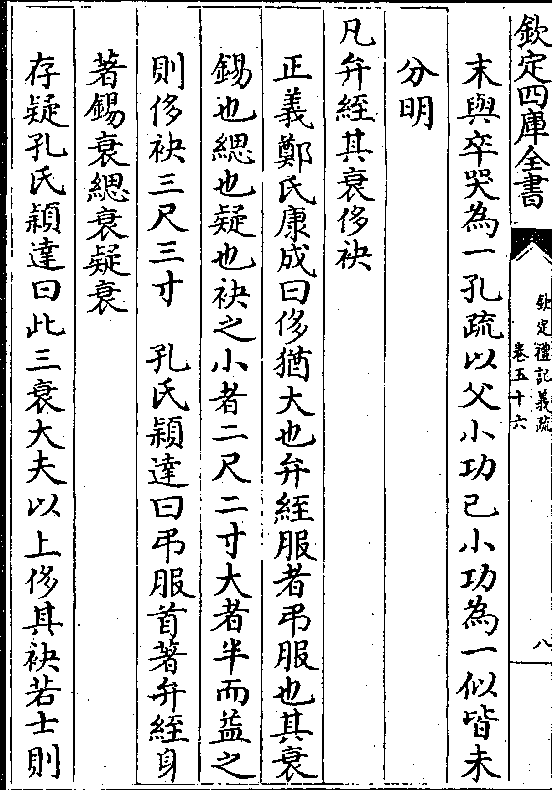 欽定四庫全書
欽定禮記義疏
卷五十六
八
末與卒哭為一孔疏以父小功己小功為一似皆未
分明
凡弁絰其衰侈袂
正義鄭氏康成曰侈猶大也弁絰服者弔服也其衰
錫也緦也疑也袂之小者二尺二寸大者半而益之
則侈袂三尺三寸　孔氏穎達曰弔服首著弁絰身
著錫衰緦衰疑衰
存疑孔氏穎達曰此三衰大夫以上侈其袂若士則